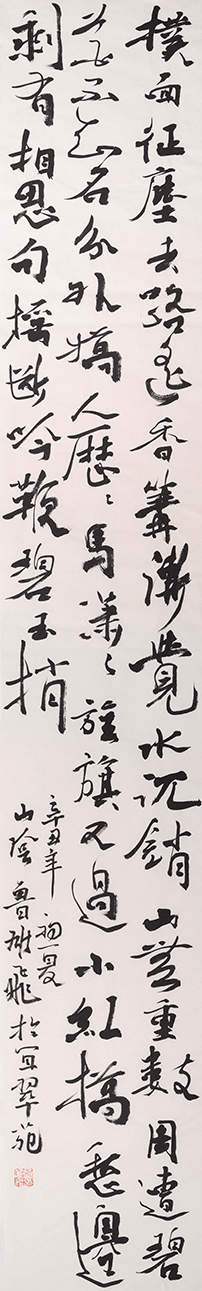 撲面征塵去路遙香篝漸覺水沉銷山無重數周遭碧
花不知名分外嬌人歷〻馬蕭〻旌旗又過小紅橋愁邊
剩有相思句搖斷吟鞭碧玉梢
辛丑年初夏
山陰魯雄飛於宜翠苑